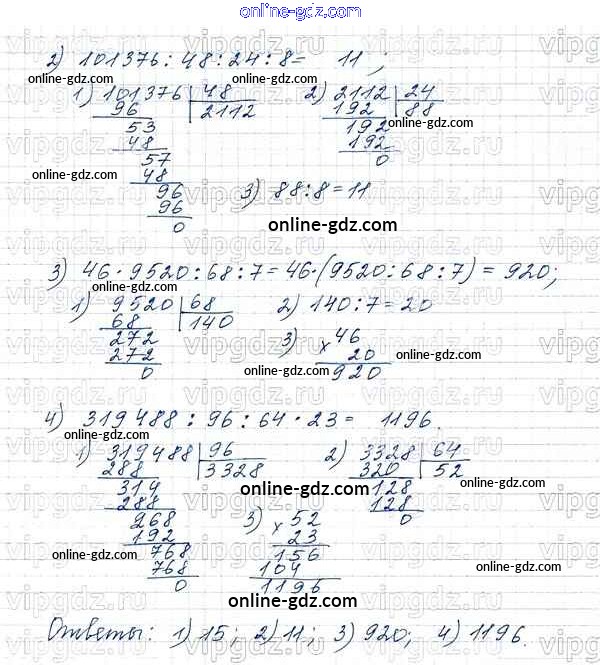 online-gdz.com
2) 101376 : 48 : 24 : 8 = 11 ;
online-gdz.com
online-gdz.com
1) 101376 | 48
96 2112
53
48
57
48
96
96
0
2) 2112 | 24
192 88
192
192
0
online-gdz.com
online-gdz.com
3) 88 : 8 = 11
online-gdz.com
3) 46 · 9520 : 68 : 7 = 46 · (9520 : 68 : 7) = 920;
1) 9520 | 68
68 140
272
272
0
2) 140 : 7 = 20
3) 46
× 20
920
online-gdz.com
online-gdz.com
4) 319488 : 96 : 64 · 23 = 1196.
online-gdz.com
1) 319488 | 96
288 3328
314
288
268
192
768
768
0
2) 3328 | 64
320 52
128
128
0
online-gdz.com
online-gdz.com
3) 52
× 23
156
104
1196
online-gdz.com
online-gdz.com
Ответы: 1) 15; 2) 11; 3) 920; 4) 1196.
vipgdz.ru